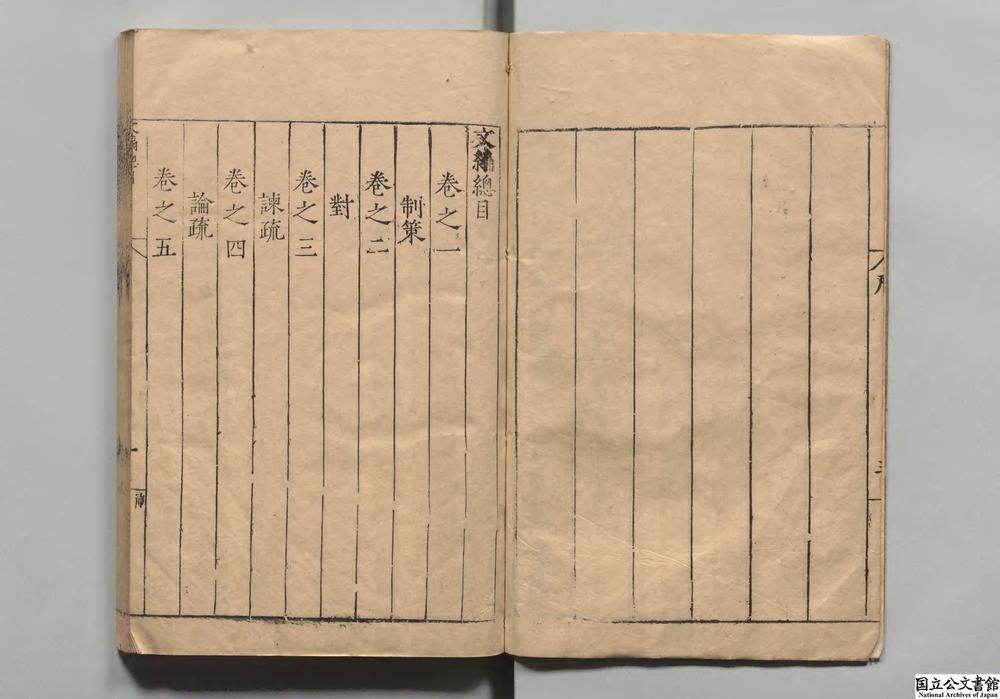 序
文編總目
卷之一
制策
卷之二
對
卷之三
諫疏
卷之四
論疏
卷之五
国立公文書館
National Archives of Japan